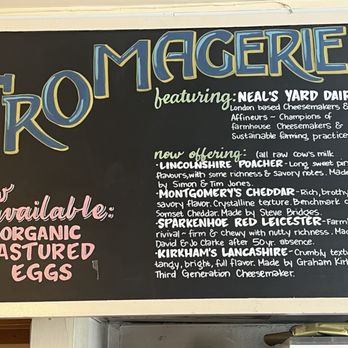 FROMAGERIE
featuring: NEAL'S YARD DAIR
London based Cheesemakers &
Affineurs ~ Champions of
farmhouse Cheesemakers &
Sustainable farming, practice
now offering: (all raw Cow's milk
·LINCOLNSHIRE POACHER- Long, sweet pin
flavours, with some richness & savory notes. Made
by Simon & Tim Jones.
·MONTGOMERY'S CHEDDAR-Rich, brothy
savory flavor. Crystalline texture. Benchmark o
Somset Cheddar. Made by Steve Bridges.
·SPARKENHOE RED LEICESTER- Farmh
rivival - firm & chewy with nutty richness. Mad
David & Jo Clarke after 50 yr. absence.
·KIRKHAM'S LANCASHIRE- Crumbly textu
tangy, bright, full flavor. Made by Graham Kirk
Third Generation Cheesemaker.
w
available:
ORGANIC
PASTURED
EGGS